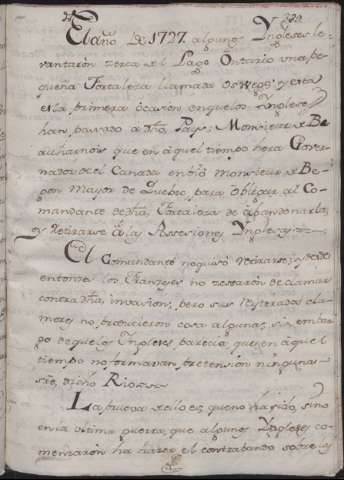 El año De 1727. algunos Yngleses le
vantaron zerca del Lago Ontario una pe
queña Fortaleza llamada Osvvego, y esta
es la primera ocasion en que los Yngleses
han pasado a dho, Pays; Monsieur de Be
auharnois que en aquel tiempo hera Gover
nador del Canada embió Monsieur de Be
gon Mayor de Quebec, para obligar al Co
mandante de dha, Fortaleza de abandonarla,
y Retirarse á las Posesiones Ynglesas
El Comandante no quiso retirarse, y desde
entonses los Franzeses no zesaron de clamar
contra dha, invasion, pero sus Reyterados cla
mores no produceron cosa alguna, sin embar
go de que los Yngleses, parecia que en aquel
tiempo no formavan, pretension ninguna
sre, dicho Rio
La prueva de ello es, que no ha sido, sino
en la ultima guerra, que algunos Yngleses co
menzaron ha hazer el contrabando sobre las